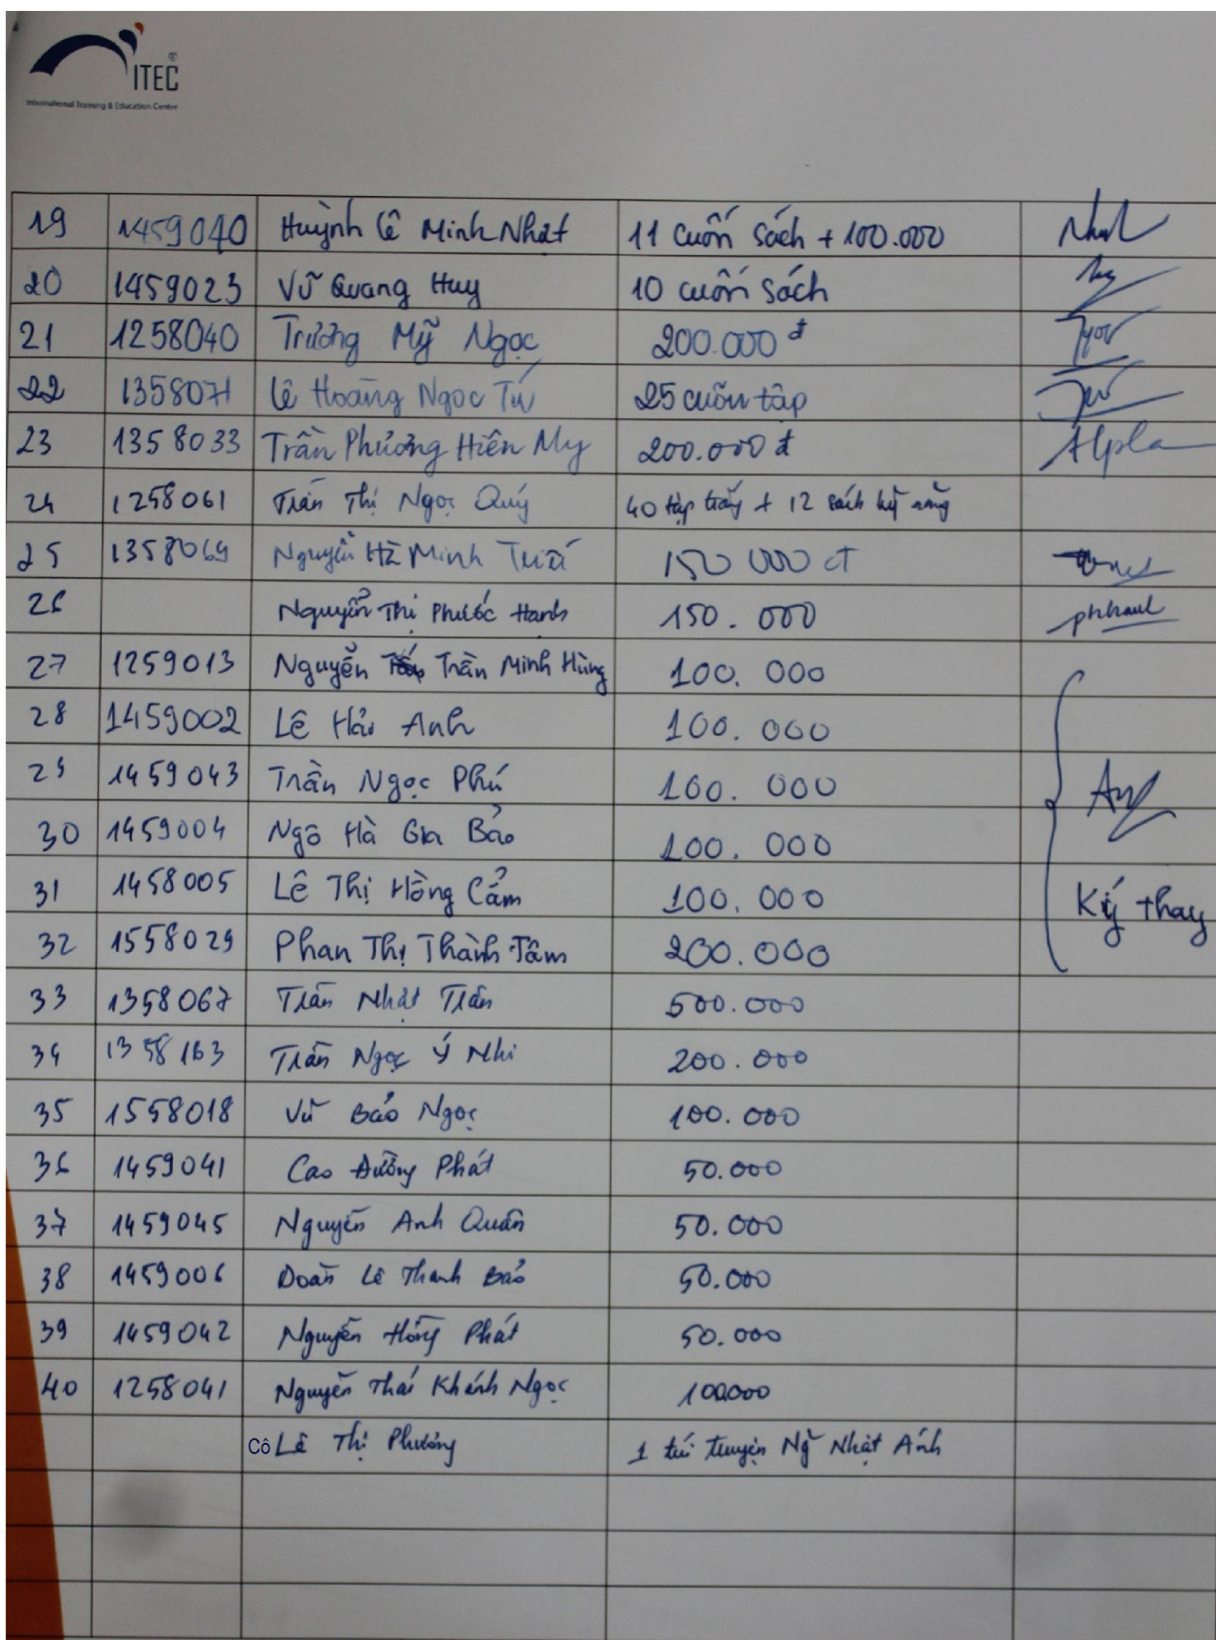 ITEC ®
International Training & Education Center
19 1459040 Huỳnh Lê Minh Nhật 11 cuốn sách + 100.000
20 1459023 Vũ Quang Huy 10 cuốn sách
21 1258040 Trương Mỹ Ngọc 200.000 đ
22 1358071 Lê Hoàng Ngọc Tú 25 cuốn tập
23 1358033 Trần Phương Hiền My 200.000 đ
24 1258061 Trần Thị Ngọc Quý 40 tập trắng + 12 sách kỹ năng
25 1358069 Nguyễn Hà Minh 150 000 đ
26 Nguyễn Thị Phước Hạnh 150.000
27 1259013 Nguyễn Trần Minh Hùng 100.000
28 1459002 Lê Hải Anh 100.000
29 1459043 Trần Ngọc Phú 100.000
30 1459004 Ngô Hà Gia Bảo 100.000
31 1458005 Lê Thị Hồng Cẩm 100.000 Ký thay
32 1558029 Phan Thị Thành Tâm 200.000
33 1358067 Trần Nhật Trân 500.000
34 1358163 Trần Ngọc Ý Nhi 200.000
35 1558018 Vũ Bảo Ngọc 100.000
36 1459041 Cao Đường Phát 50.000
37 1459045 Nguyễn Anh Quân 50.000
38 1459006 Đoàn Lê Thanh Bảo 50.000
39 1459042 Nguyễn Hồng Phát 50.000
40 1258041 Nguyễn Thái Khánh Ngọc 100.000
Cô Lê Thị Phượng 1 túi truyện Ng̃ Nhật Ánh